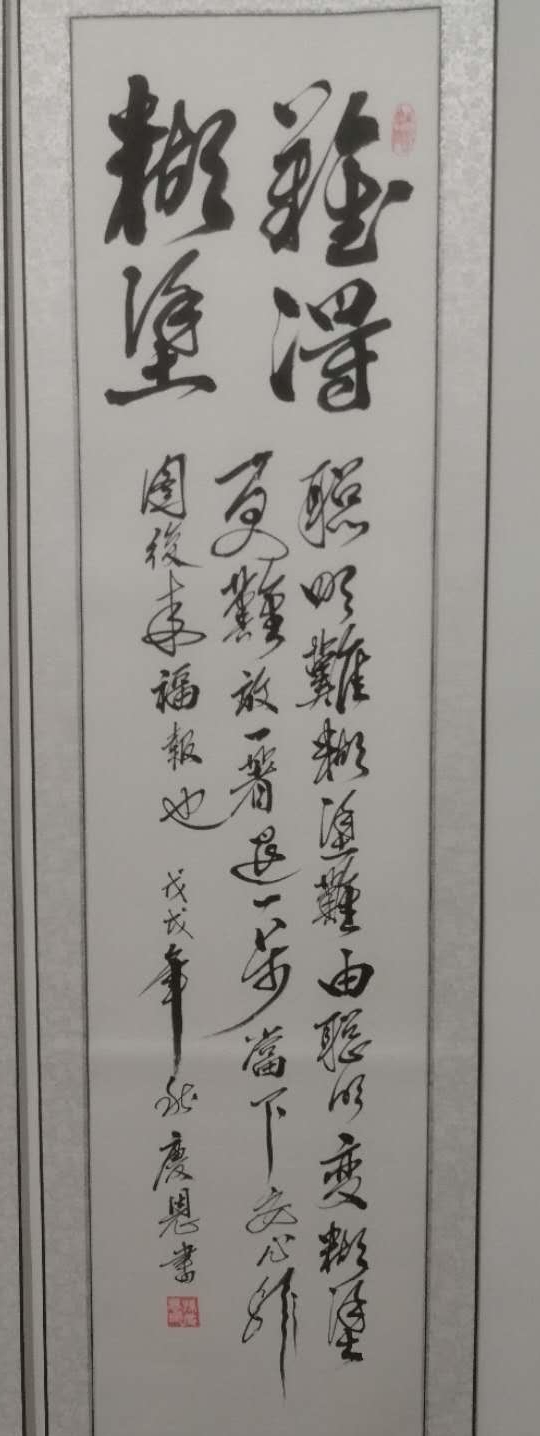 難得
糊塗
聪明難糊塗難由聪明变糊塗
更難放一著退一步當下安心非
圖後来福報也
戊戌年 慶恩書